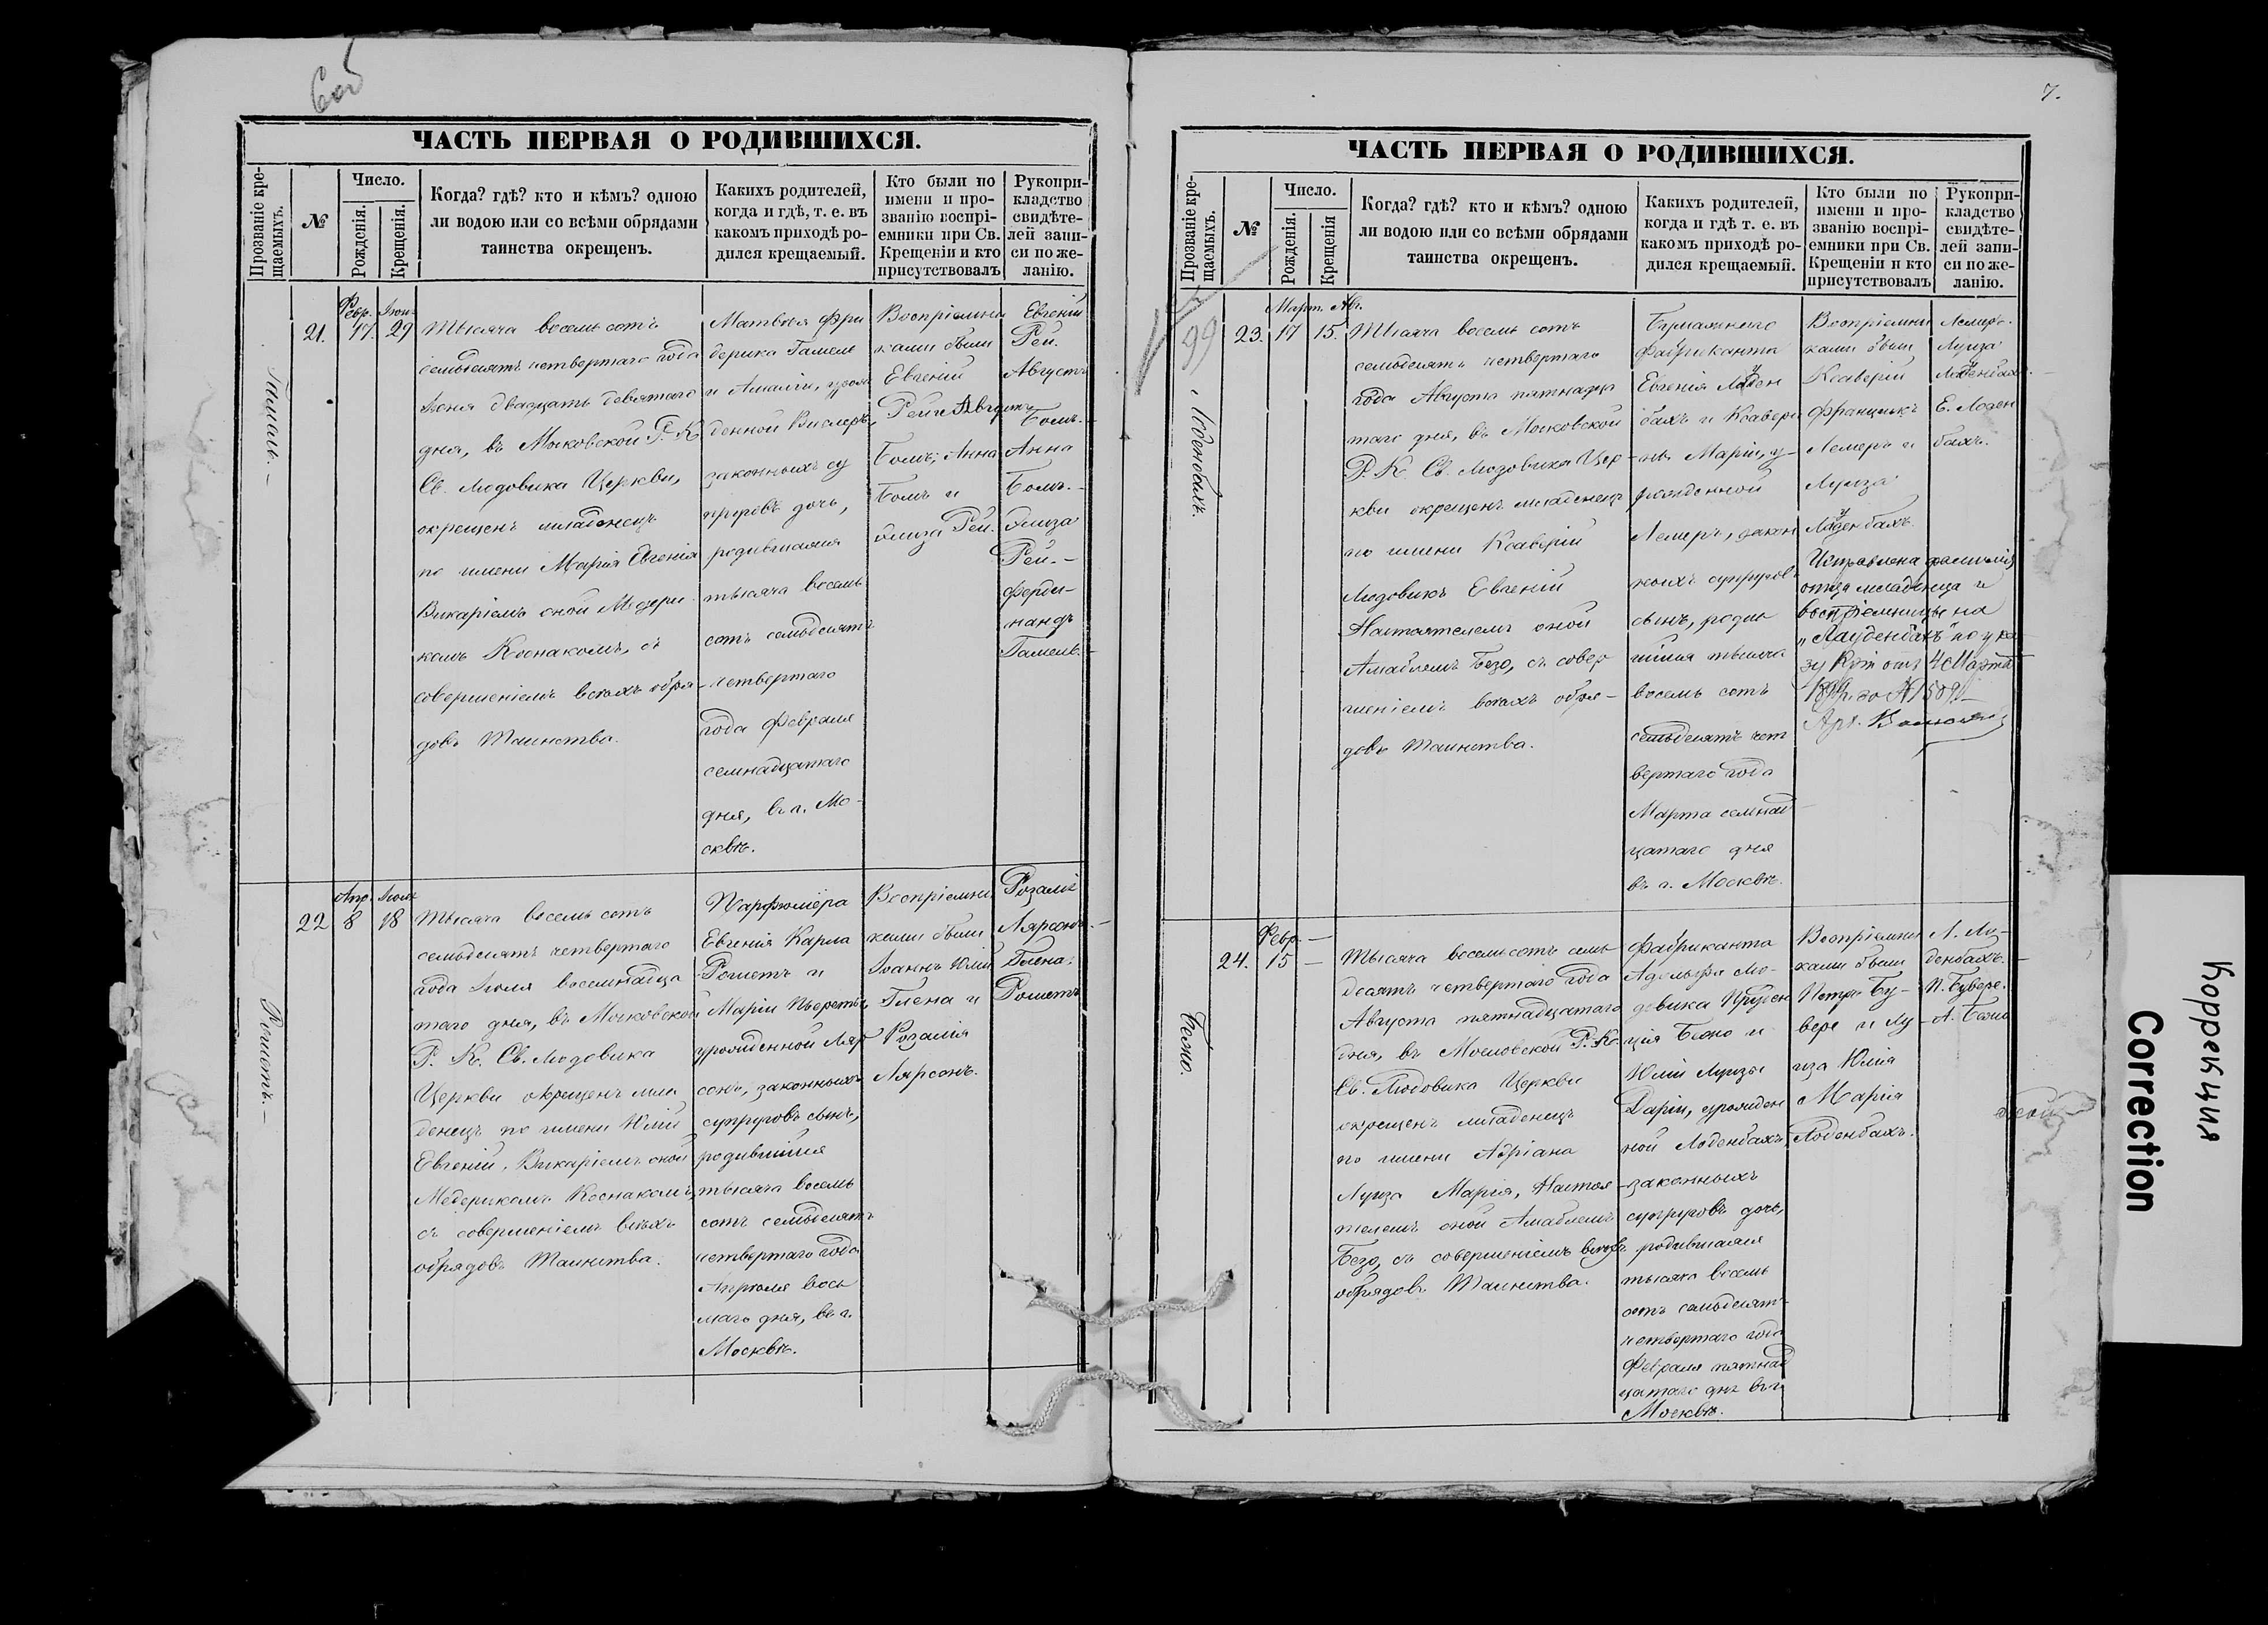 6 об
ЧАСТЬ ПЕРВАЯ О РОДИВШИХСЯ.
Прозваніе кре-
щаемыхъ.
№
Число.
Рожденія.
Крещенія.
Когда? гдѣ? кто и кѣмъ? одною
ли водою или со всѣми обрядами
таинства окрещенъ.
Какихъ родителей,
когда и гдѣ, т. е. въ
какомъ приходѣ ро-
дился крещаемый.
Кто были по
имени и про-
званію воспрі-
емники при Св.
Крещеніи и кто
присутствовалъ
Рукопри-
кладство
свидѣте-
лей запи-
си по же-
ланію.
21.
Февр.
17.
Іюн.
29
Тысяча восемь сотъ
семьдесятъ четвертаго года
Іюня двадцать девятаго
дня, въ Московской Р. К.
Св. Людовика Церкви,
окрещенъ младенецъ
по имени Марія Евгенія
Викаріемъ оной Медери-
комъ Коснакомъ, съ
совершеніемъ всѣхъ обря-
довъ Таинства.
Матвѣя Фри
дерика Гамель
и Амаліи, урож
денной
законныхъ су
пруговъ дочь,
родившаяся
тысяча восемь
сотъ семьдесятъ
четвертаго
года Февраля
семнадцатаго
дня, въ г. Мо-
сквѣ.
Воспріемни
ками были
Евгеній
Рей и Августъ
Бомъ, Анна
Бомъ и
Элиза Рей.
Евгеній
Рей.
Августъ
Бомъ.
Анна
Бомъ.
Элиза
Рей.
Ферди-
нандъ
Гамель.
22
Апр.
8
Іюля
18
Рошетъ.
Тысяча восемь сотъ
семьдесятъ четвертаго
года Іюля восемнадца
таго дня, въ Московской
Р. К. Св. Людовика
Церкви окрещенъ мла
денецъ по имени Юлій
Евгеній. Викаріемъ оной
Медерикомъ Коснакомъ,
съ совершеніемъ всѣхъ
обрядовъ Таинства.
Парфюмера
Евгенія Карла
Рошетъ и
Маріи Пьеретты
урожденной Ляр
сонъ, законныхъ
супруговъ сынъ,
родившійся
тысяча восемь
сотъ семьдесятъ
четвертаго года
Апрѣля вось
маго дня, въ г.
Москвѣ.
Воспріемни
ками были
Іоаннъ Юлій
Глена и
Розалія
Лярсонъ.
Розалія
Лярсонъ.
Глена.
Рошетъ
7.
ЧАСТЬ ПЕРВАЯ О РОДИВШИХСЯ.
Прозваніе кре-
щаемыхъ.
№
Число.
Рожденія.
Крещенія
Когда? гдѣ? кто и кѣмъ? одною
ли водою или со всѣми обрядами
таинства окрещенъ.
Какихъ родителей,
когда и гдѣ т. е. въ
какомъ приходѣ ро-
дился крещаемый.
Кто были по
имени и про-
званію воспрі-
емники при Св.
Крещеніи и кто
присутствовалъ
Рукопри-
кладство
свидѣте-
лей запи-
си по же-
ланію.
99
Лоденбахъ.
23.
Март.
17
Авг.
15.
Тысяча восемь сотъ
семьдесятъ четвертаго
года Августа пятнадца
таго дня, въ Московской
Р. К. Св. Людовика Цер-
кви окрещенъ младенецъ
по имени Ксаверій
Людовикъ Евгеній
Настоятелемъ оной
Амаблемъ Безо, съ совер
шеніемъ всѣхъ обря-
довъ Таинства.
Бумажнаго
Фабриканта
Евгенія Лоден
бахъ и Ксавері
ны Маріи, у-
рожденной
Лемеръ, закон
ныхъ супругов
сынъ, родив
шійся тысяча
восемь сотъ
семьдесятъ чет
вертаго года
Марта семнад
цатаго дня
въ г. Москвѣ.
Воспріемни
ками были
Ксаверій
Францискъ
Лемеръ и
Луиза
Лоденбахъ.
Исправлена фамилія
отца младенца и
воспріемницы на
„Лауденбахъ" по ука
зу Кон отъ 4 Марта
за № 1509.
Лемеръ.
Луиза
Лоденбахъ.
Е. Лоден
бахъ.
24.
Февр.
15
Бено.
Тысяча восемьсотъ семь
десятъ четвертаго года
Августа пятнадцатаго
дня, въ Московской Р. К.
Св. Людовика Церкви
окрещенъ младенецъ
по имени Адріана
Луиза Марія, Настоя-
телемъ оной Амаблемъ
Безо, съ совершеніемъ всѣхъ
обрядовъ Таинства.
Фабриканта
Адольфа Лю-
довика Пруден
ція Бено и
Юліи Луизы
Даріи, урожден
ной Лоденбахъ
законныхъ
супруговъ дочь,
родившаяся
тысяча восемь
сотъ семьдесятъ
четвертаго года
Февраля пятнад
цатаго дня въ г.
Москвѣ.
Воспріемни
ками были
Петръ Бу-
вере и Лу-
иза Юлія
Марія
Лоденбахъ.
Л. Ло-
денбахъ.
П. Бувере.
А. Бено
Коррекция
Correction